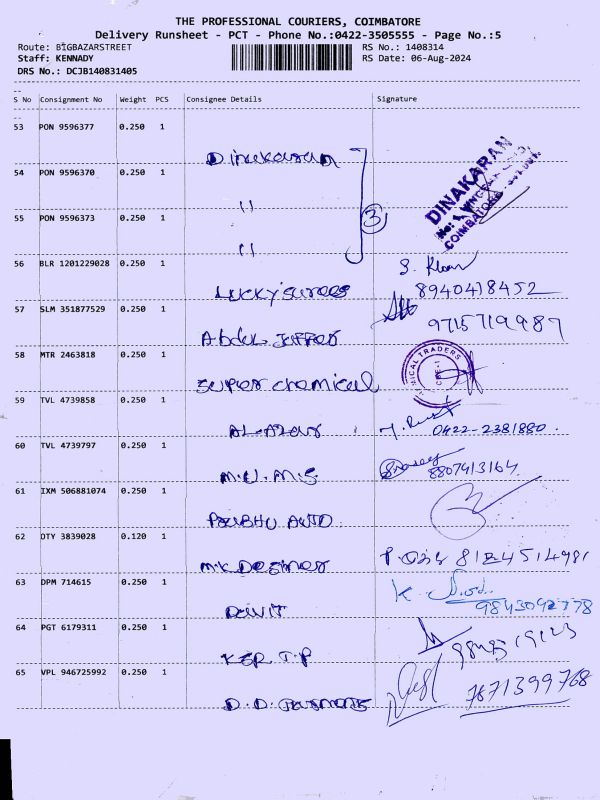 THE PROFESSIONAL COURIERS, COIMBATORE
Delivery Runsheet - PCT - Phone No.:0422-3505555 - Page No.:5
Route: BIGBAZARSTREET RS No.: 1408314
Staff: KENNADY RS Date: 06-Aug-2024
DRS No.: DCJB140831405
S No Consignment No Weight PCS Consignee Details Signature
53 PON 9596377 0.250 1
Dinakaran
DINAKARAN
COIMBATORE
54 PON 9596370 0.250 1
"
3
55 PON 9596373 0.250 1
"
56 BLR 1201229028 0.250 1
S. Khan
8940418452
57 SLM 351877529 0.250 1
Abdul Jaffer
9715719987
58 MTR 2463818 0.250 1
Super chemical
TRADERS
CBE-1
59 TVL 4739858 0.250 1
0422-2381880
60 TVL 4739797 0.250 1
M.U.M.S.
8807413164
61 IXM 506881074 0.250 1
PRABHU AUTO
62 OTY 3839028 0.120 1
M.K Desiner
8124514981
63 DPM 714615 0.250 1
K
9843042778
64 PGT 6179311 0.250 1
T.P
65 VPL 946725992 0.250 1
D.D.
7871399768